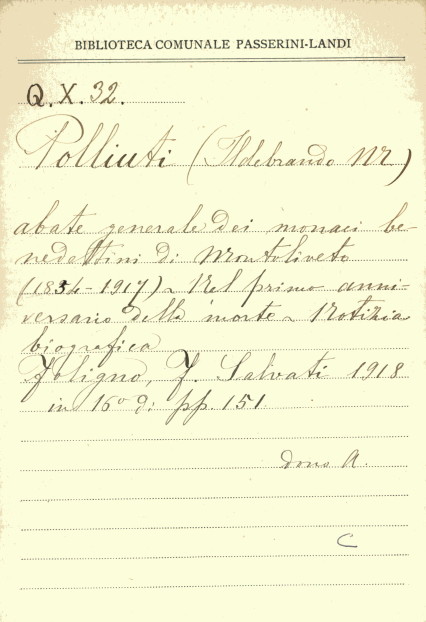 BIBLIOTECA COMUNALE PASSERINI-LANDI
Q. X. 32.
Polliuti (Ildebrando M.)
abate generale dei monaci be-
nedettini di Montoliveto
(1854-1917) ~ Nel primo anni-
versario della morte ~ Notizia
biografica
Foligno, F. Salvati 1918
in 16º di pp. 151
dono A.
C